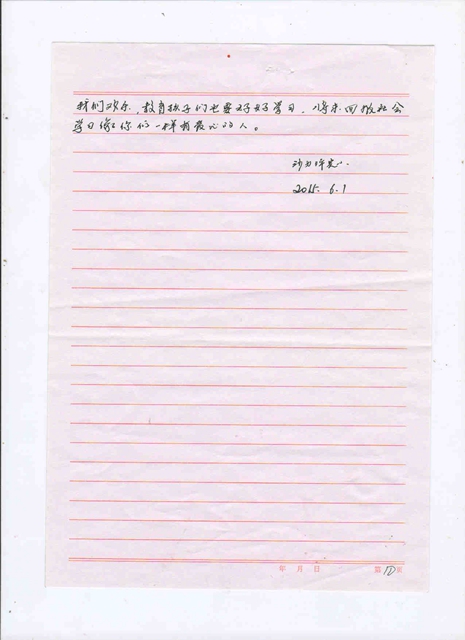 我们欧尔，教育孩子们也要好好学习，将来回报社公
学习像你们一样有爱心的人。
2015. 6.1
年 月 日
第 页